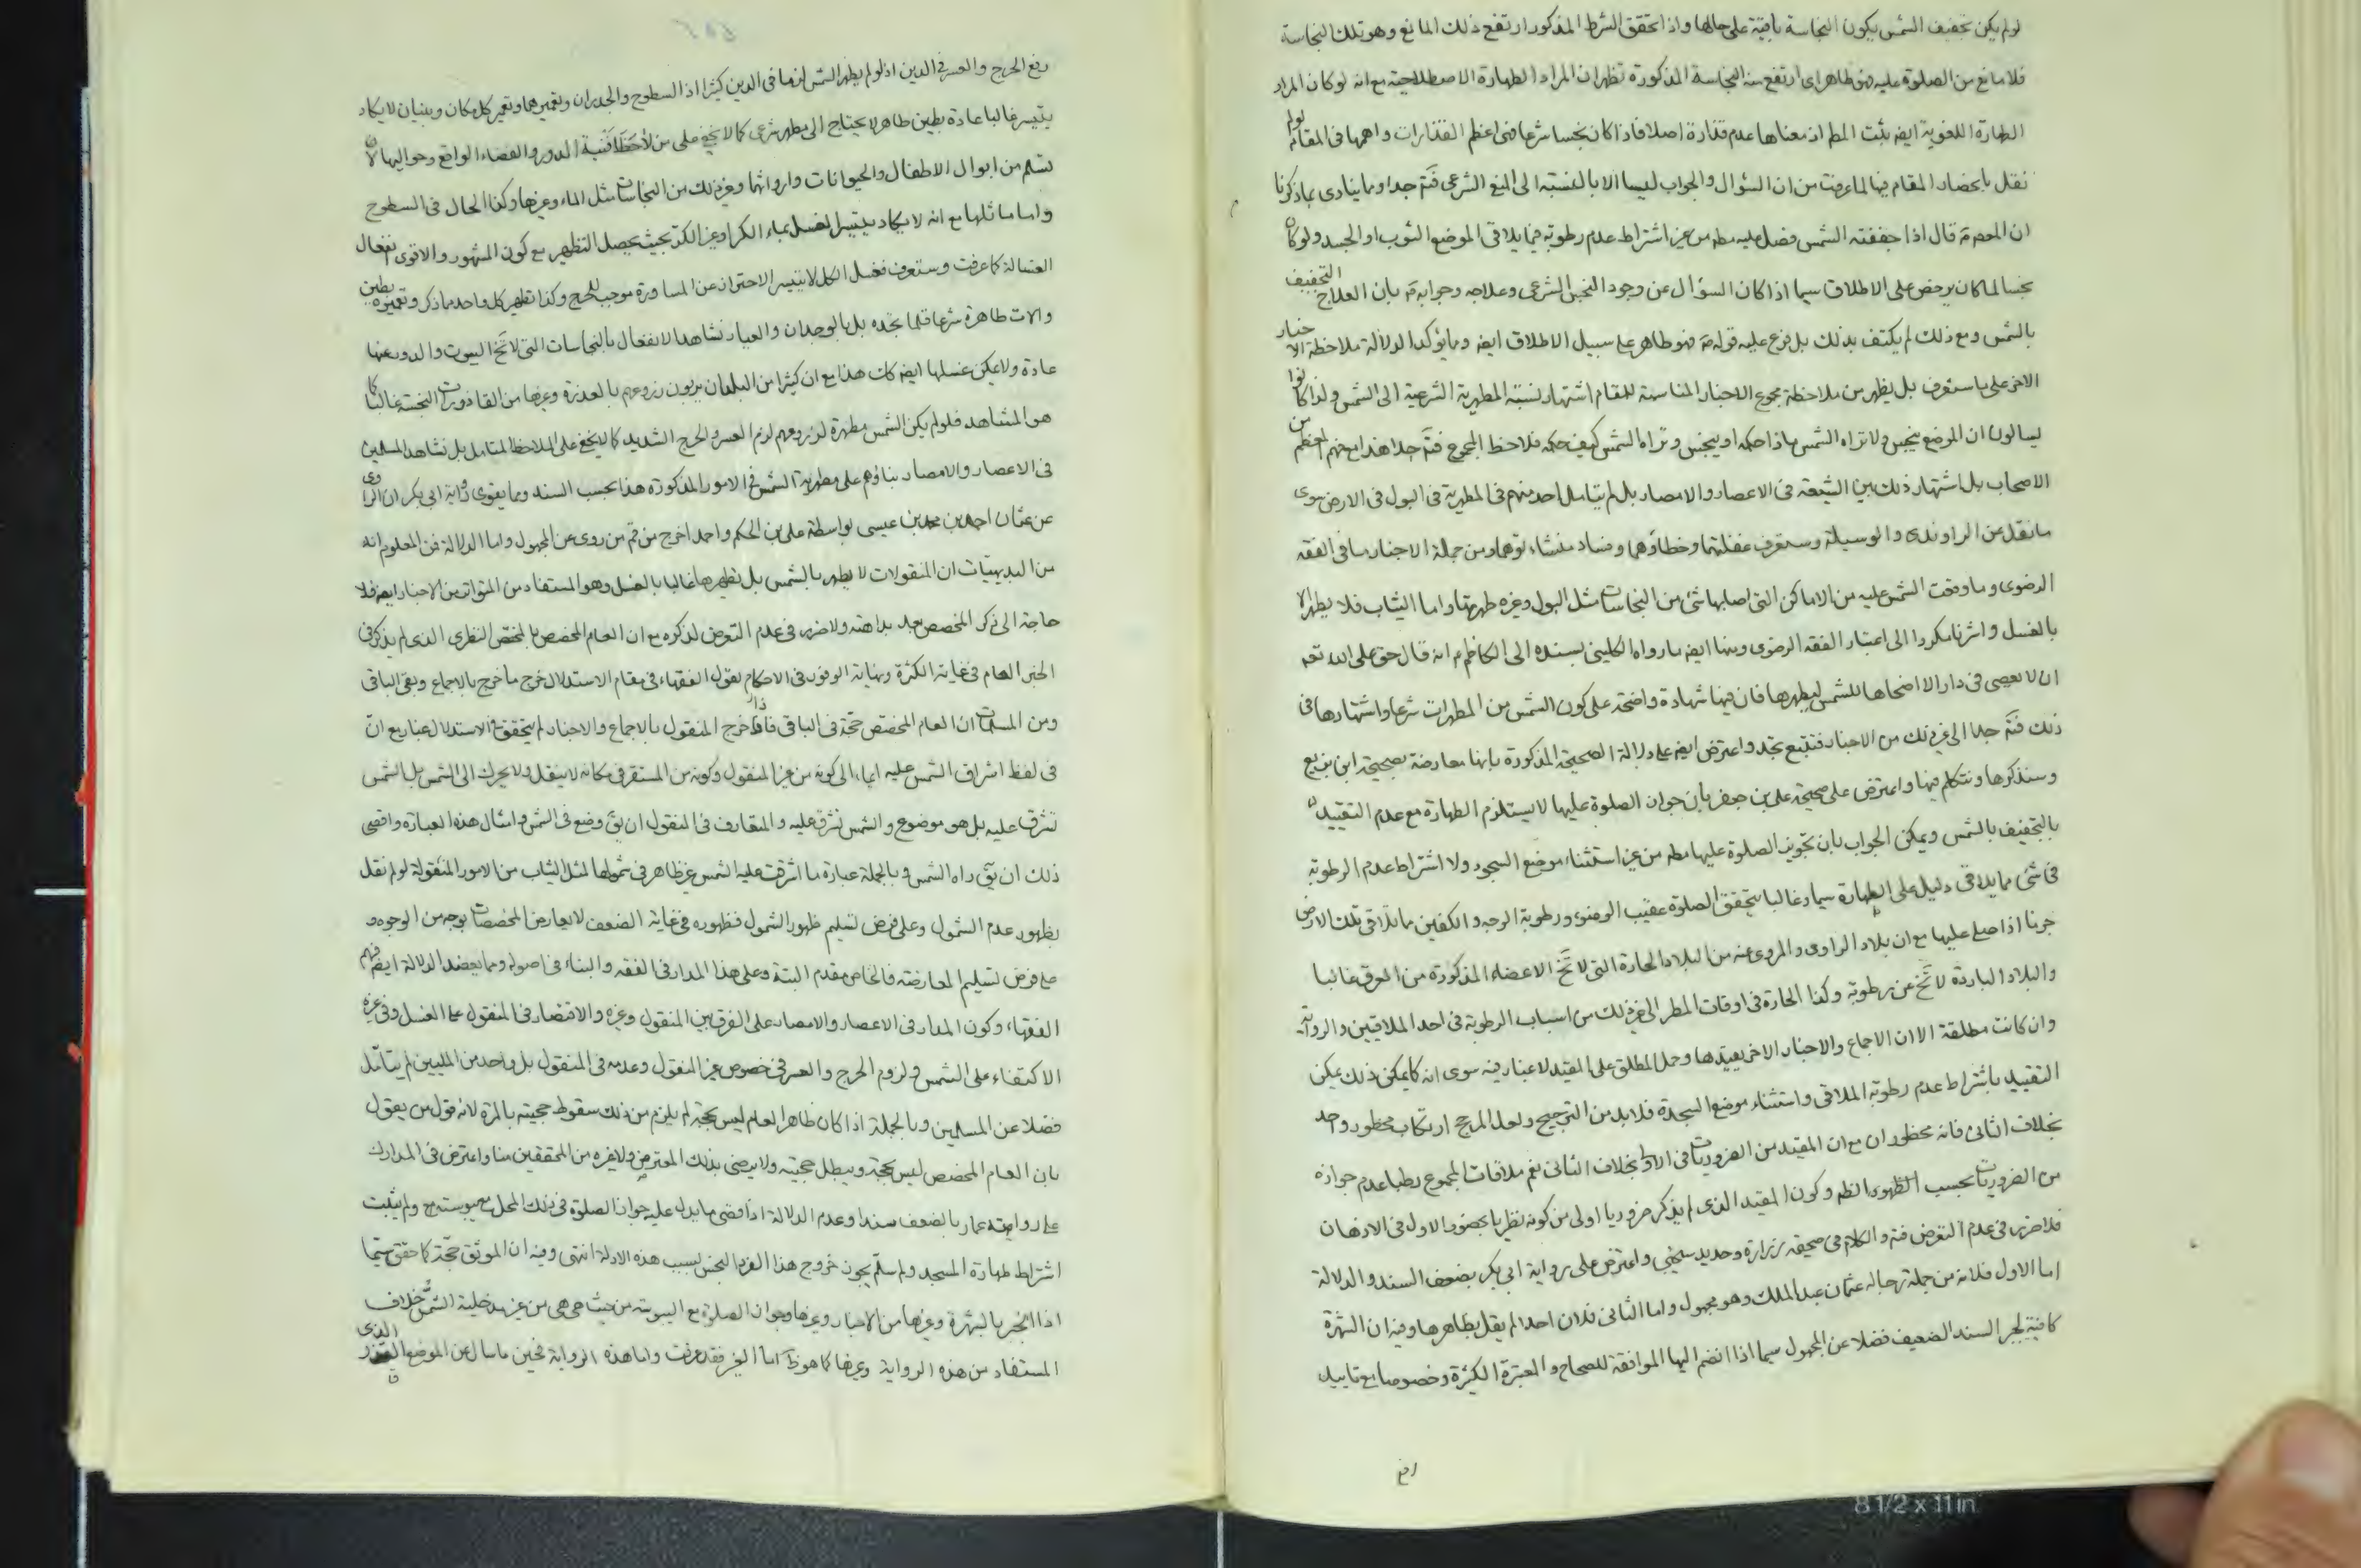 لو لم يكن تجفيف الشمس يكون النجاسة باقية على حالها واذا تحقق الشرط المذكور ارتفع ذلك المانع وهو تلك النجاسة
فلا مانع من الصلوة عليه فهو طاهر اى ارتفع منه النجاسة المذكورة تظهر ان المراد الطهارة الاصطلاحية مع انه لو كان المراد
الطهارة اللغوية ايضه يثبت المط اذ معناها عدم قذارة اصلا فاذا كان نجسا شرعا فهى اعظم القذارات واهمها فى المقام لو لم
نقل بانحصار المقام فيها لما عرفت من ان السؤال والجواب ليسا الا بالنسبة الى المنع الشرعى فتم جدا ومما ينادى بما ذكرنا
ان المعصوم ع قال اذا جففته الشمس فصل عليه مط من غير اشتراط عدم رطوبة فيما يلاقى الموضع الثوب او الجسد ولو كان
نجسا لما كان يرخص على الاطلاق سيما اذا كان السؤال عن وجود النجس الشرعى وعلاجه وجوابه ع بان العلاج التجفيف
بالشمس ومع ذلك لم يكتف بذلك بل فرع عليه قوله ع فهو طاهر على سبيل الاطلاق ايضه ومما يؤكد الدلالة ملاحظة الاخبار
الاخر على ما ستعرف بل يظهر من ملاحظة مجموع الاخبار المناسبة للمقام اشتهار نسبة المطهرية الشرعية الى الشمس ولذا كانوا
يسالون ان الموضع ينجس ولا تراه الشمس ماذا حكمه او ينجس وتراه الشمس كيف حكمه فلاحظ المجموع فتم جدا هذا مع فهم المعظم من
الاصحاب بل اشتهار ذلك بين الشيعة فى الاعصار والامصار بل لم يتامل احد منهم فى المطهرية فى البول فى الارض سوى
ما نقل عن الراوندى والوسيلة وستعرف غفلتهما وخطاؤهما وفساد منشاء توهما ومن جملة الاخبار ما فى الفقه
الرضوى وما وقعت الشمس عليه من الاماكن التى اصابها شئ من النجاسات مثل البول وغيره طهرتها واما الثياب فلا يطهر الا
بالغسل واشرنا مكررا الى اعتبار الفقه الرضوى ومنها ايضه ما رواه الكلينى بسنده الى الكاظم ع انه قال حق على الله تعه
ان لا يعصى فى دار الا اضحاها للشمس ليطهرها فان فيها شهادة واضحة على كون الشمس من المطهرات شرعا واشتهارها فى
ذلك فتم جدا الى غير ذلك من الاخبار فتتبع تجد واعترض ايضه على دلالة الصحيحة المذكورة بانها معارضة بصحيحة ابن بزيع
وسنذكرها ونتكلم فيها واعترض على صحيحة على بن جعفر بان جواز الصلوة عليها لا يستلزم الطهارة مع عدم التقييد
بالتجفيف بالشمس ويمكن الجواب بان تجويز الصلوة عليها مط من غير استثناء موضع السجود ولا اشتراط عدم الرطوبة
فى شئ مما يلاقى دليل على الطهارة سيما وغالبا يتحقق الصلوة عقيب الوضوء ورطوبة الوجه والكفين ما تلاقى تلك الارض
جزما اذا صلى عليها مع ان بلاد الراوى والمروى عنه من البلاد الحارة التى لا تخ الاعضاء المذكورة من العرق غالبا
والبلاد الباردة لا تخ عن رطوبة وكذا الحارة فى اوقات المطر الى غير ذلك من اسباب الرطوبة فى احد الملاقيين والرواية
وان كانت مطلقة الا ان الاجماع والاخبار الاخر يقيدها وحمل المطلق على المقيد لا غبار فيه سوى انه كما يمكن ذلك يمكن
التقييد باشتراط عدم رطوبة الملاقى واستثناء موضع السجدة فلا بد من الترجيح ولعل المرجح ارتكاب محظور واحد
بخلاف الثانى فانه محظوران مع ان المقيد من الضروريات فى الاول بخلاف الثانى نعم ملاقات المجموع رطبا عدم جوازه
من الضروريات بحسب الظهور الظه وكون المقيد الذى لم يذكر ضروريا اولى من كونه نظريا بحضور الاول فى الاذهان
فلا ضرر فى عدم التعرض فتم والكلام فى صحيحة زرارة وحديد سيجئ واعترض على رواية ابى بكر بضعف السند والدلالة
اما الاول فلانه من جملة رجاله عثمان بن عبد الملك وهو مجهول واما الثانى فلان احدا لم يقل بظاهرها وفيه ان الشهرة
كافية لجبر السند الضعيف فضلا عن المجهول سيما اذا انضم اليها الموافقة للصحاح والمعتبرة الكثيرة وخصوصا مع تاييد
رفع
رفع الحرج والعسر فى الدين اذ لو لم يطهر الشمس لزمها فى الدين كثيرا اذ السطوح والجدران وتعميرهما وتعمير كل مكان وبنيان لا يكاد
يتيسر غالبا عادة بطين طاهر لا يحتاج الى مطهر شرعى كما لا يخفى على من لاحظ افنية الدور والفضاء الواقع وحواليها لان
تسلم من ابوال الاطفال والحيوانات وارواثها وغير ذلك من النجاسات مثل الماء وغيرها وكذا الحال فى السطوح
واما ما ثلها مع انه لا يكاد يتيسر الغسل بماء الكر او غير الكر بحيث يحصل التطهير مع كون المشهور والاقوى انفعال
الغسالة كما عرفت وستعرف فغسل الكل لا يتيسر الاحتراز عن المساورة موجب للحرج وكذا تطهير كل واحد مما ذكر وتعميره بطين
والات طاهرة شرعا قلما نجده بل بالوجدان والعيان نشاهد الانفعال بالنجاسات التى لا تخ البيوت والدور عنها
عادة ولا يمكن غسلها ايضه كات هذا مع ان كثيرا من البلدان يربون زروعهم بالعذرة وغيرها من القاذورات النجسة غالبا كما
هو المشاهد فلو لم يكن الشمس مطهرة لزروعهم لزم العسر والحرج الشديد كما لا يخفى على الملاحظ المتامل بل نشاهد المسلمين
فى الاعصار والامصار بناؤهم على مطهرية الشمس فى الامور المذكورة هذا بحسب السند ومما يقوى رواية ابى بكر ان الراوى
عن عثمان احمد بن محمد بن عيسى بواسطة على بن الحكم واحمد اخرج من قم من روى عن المجهول واما الدلالة فمن المعلوم انه
من البديهيات ان المنقولات لا يطهر بالشمس بل تطهيرها غالبا بالغسل وهو المستفاد من المتواتر من الاخبار ايضه فلا
حاجة الى ذكر المخصص بعد بداهته ولا ضرر فى عدم التعرض لذكره مع ان العام المخصص بالمخصص النظرى الذى لم يذكر فى
الخبر العام فى غاية الكثرة ونهاية الوفور فى الاحكام يقول الفقهاء فى مقام الاستدلال خرج ما خرج بالاجماع وبقى الباقى
ومن المسلمات ان العام المخصص حجة فى الباقى فاذا خرج المنقول بالاجماع والاخبار لم يتحقق فى الاستدلال غبار مع ان
فى لفظ اشراق الشمس عليه ايماء الى كونه من غير المنقول وكونه من المستقر فى مكانه لا ينقل ولا يحرك الى الشمس بل الشمس
تشرق عليه بل هو موضوع والشمس تشرق عليه والمتعارف فى المنقول ان يق وضع فى الشمس وامثال هذه العبارة واقصى
ذلك ان يق راه الشمس وبالجملة عبارة ما اشرقت عليه الشمس غير ظاهر فى شمولها لمثل الثياب من الامور المنقولة لو لم نقل
بظهور عدم الشمول وعلى فرض تسليم ظهور الشمول فظهوره فى غاية الضعف لا يعارض المخصصات بوجه من الوجوه و
على فرض تسليم المعارضة فالخاص مقدم البتة وعلى هذا المدار فى الفقه والبناء فى اصوله ومما يعضد الدلالة ايضه فهم
الفقهاء وكون المدار فى الاعصار والامصار على الفرق بين المنقول وغيره والاقتصار فى المنقول على الغسل وفى غيره
الاكتفاء على الشمس ولزوم الحرج والعسر فى خصوص غير المنقول وعدمه فى المنقول بل واحد من المليين لم يتامل
فضلا عن المسلمين وبالجملة اذا كان ظاهر العام ليس بحجة لم يلزم من ذلك سقوط حجيته بالمرة لانه قول من يقول
بان العام المخصص ليس بحجة ويبطل حجيته ولا يرضى بذلك المعترض ولا غيره من المحققين منا واعترض فى المدارك
على رواية عمار بالضعف سندا وعدم الدلالة اذ اقصى ما يدل عليه جواز الصلوة فى ذلك المحل مع يبوسته ولم يثبت
اشتراط طهارة المسجد ولم سلم يجوز خروج هذا الفرد النجس بسبب هذه الادلة انتهى وفيه ان الموثق حجة كما حقق سيما
اذا انجبر بالشهرة وغيرها من الاخبار وغيرها وجواز الصلوة مع اليبوسة من حيث هى هى من غير مدخلية الشمس خلاف
المستفاد من هذه الرواية وغيرها كما هو ظ اما الغير فقد عرفت واما هذه الرواية فحين ما سال عن الموضع القذر الذى
8 1/2 x 11 in